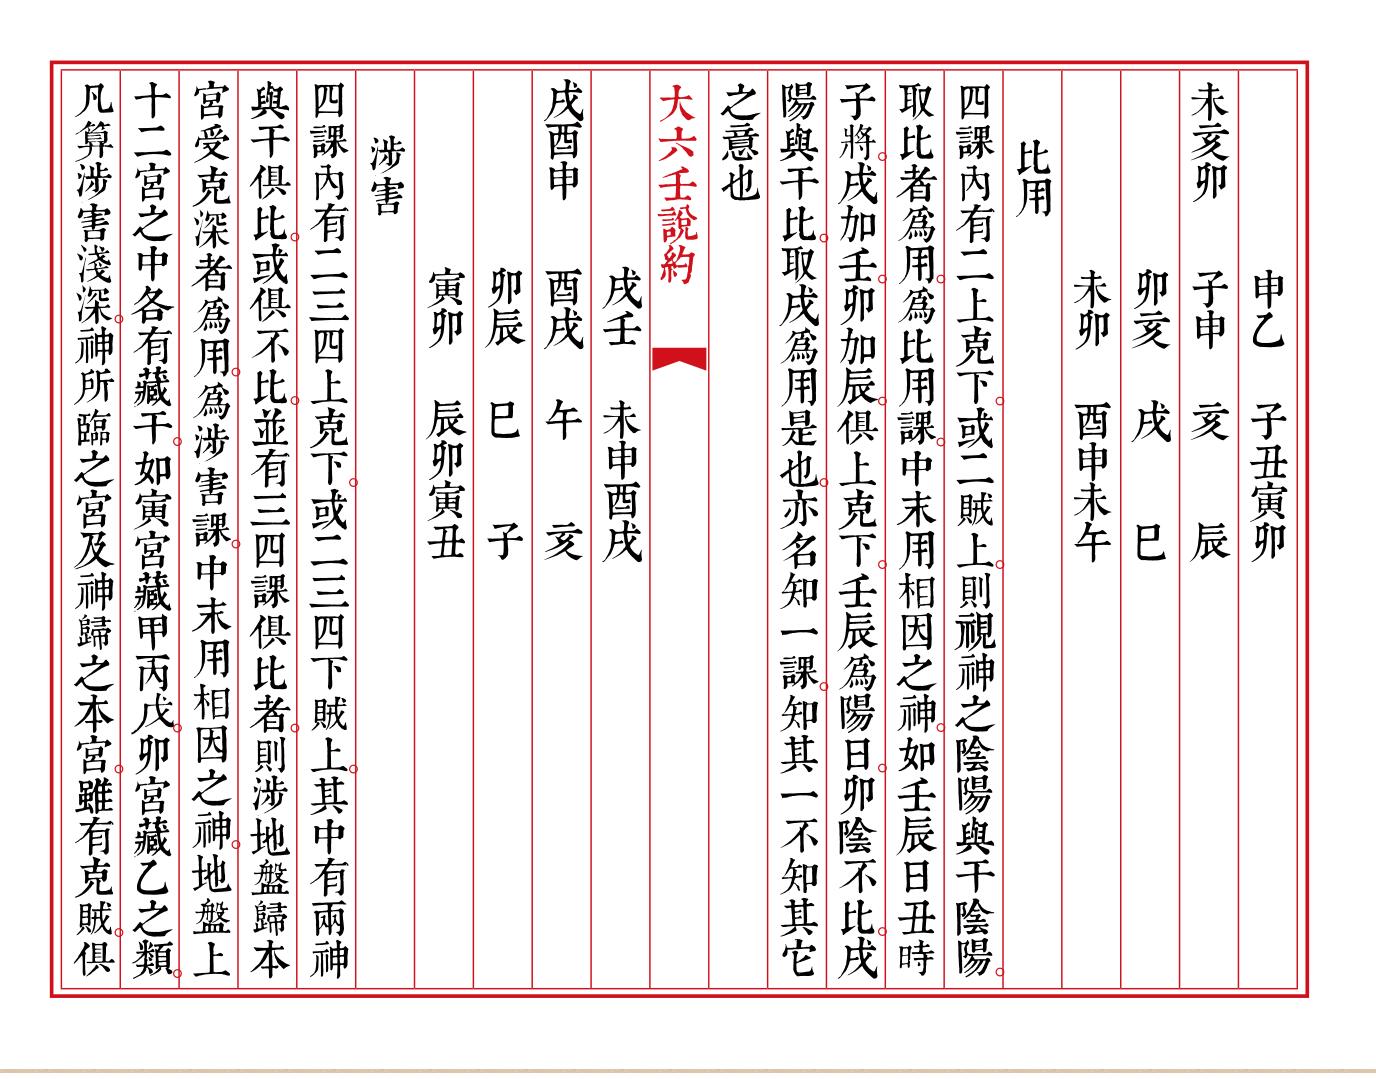 申乙　子丑寅卯
未亥卯　子申　亥　辰
卯亥　戌　巳
未卯　酉申未午
比用
四課內有二上克下。或二賊上。則視神之陰陽與干陰陽。
取比者爲用。爲比用課。中末用相因之神。如壬辰日丑時
子將。戌加壬。卯加辰。俱上克下。壬辰爲陽日。卯陰不比。戌
陽與干比。取戌爲用是也。亦名知一課。知其一不知其它
之意也
大六壬說約
戌壬　未申酉戌
戌酉申　酉戌　午　亥
卯辰　巳　子
寅卯　辰卯寅丑
涉害
四課內有二三四上克下。或二三四下賊上。其中有兩神
與干俱比。或俱不比。並有三四課俱比者。則涉地盤歸本
宮受克深者爲用。爲涉害課。中末用相因之神。地盤上
十二宮之中各有藏干。如寅宮藏甲丙戊。卯宮藏乙之類。
凡算涉害淺深。神所臨之宮及神歸之本宮。雖有克賊。俱